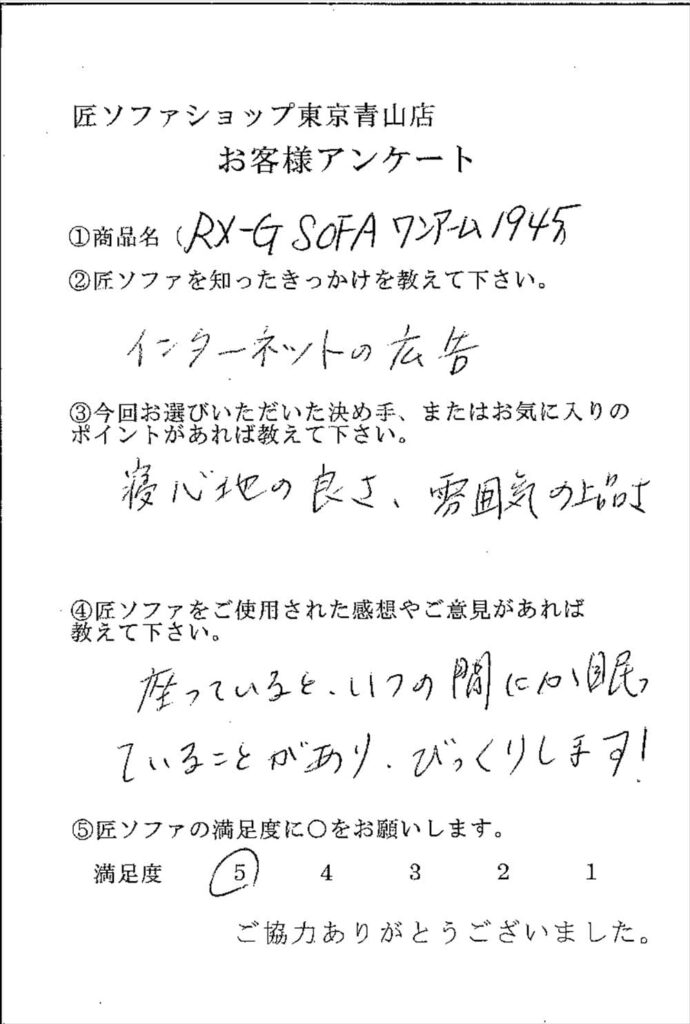 匠ソファショップ東京青山店
お客様アンケート
①商品名（RX-G SOFA ワンアーム 194
②匠ソファを知ったきっかけを教えて下さい。
インターネットの広告
③今回お選びいただいた決め手、またはお気に入りの
ポイントがあれば教えて下さい。
寝心地の良さ、雰囲気の上品さ
④匠ソファをご使用された感想やご意見があれば
教えて下さい。
座っていると、いつの間にか眠っ
ていることがあり、びっくりします!
⑤匠ソファの満足度に○をお願いします。
満足度 5 4 3 2 1
ご協力ありがとうございました。